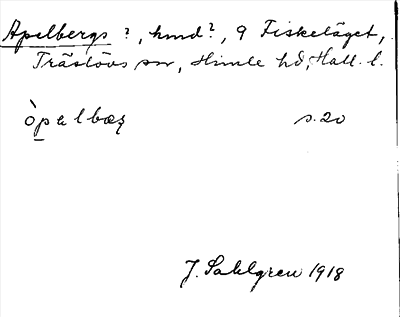 Apelbergs ?, hmd?, 9 Fisketåget,
Träslövs sn, Himle hd, Hall. l.
òpelbæʒ s. 20
J. Sahlgren 1918